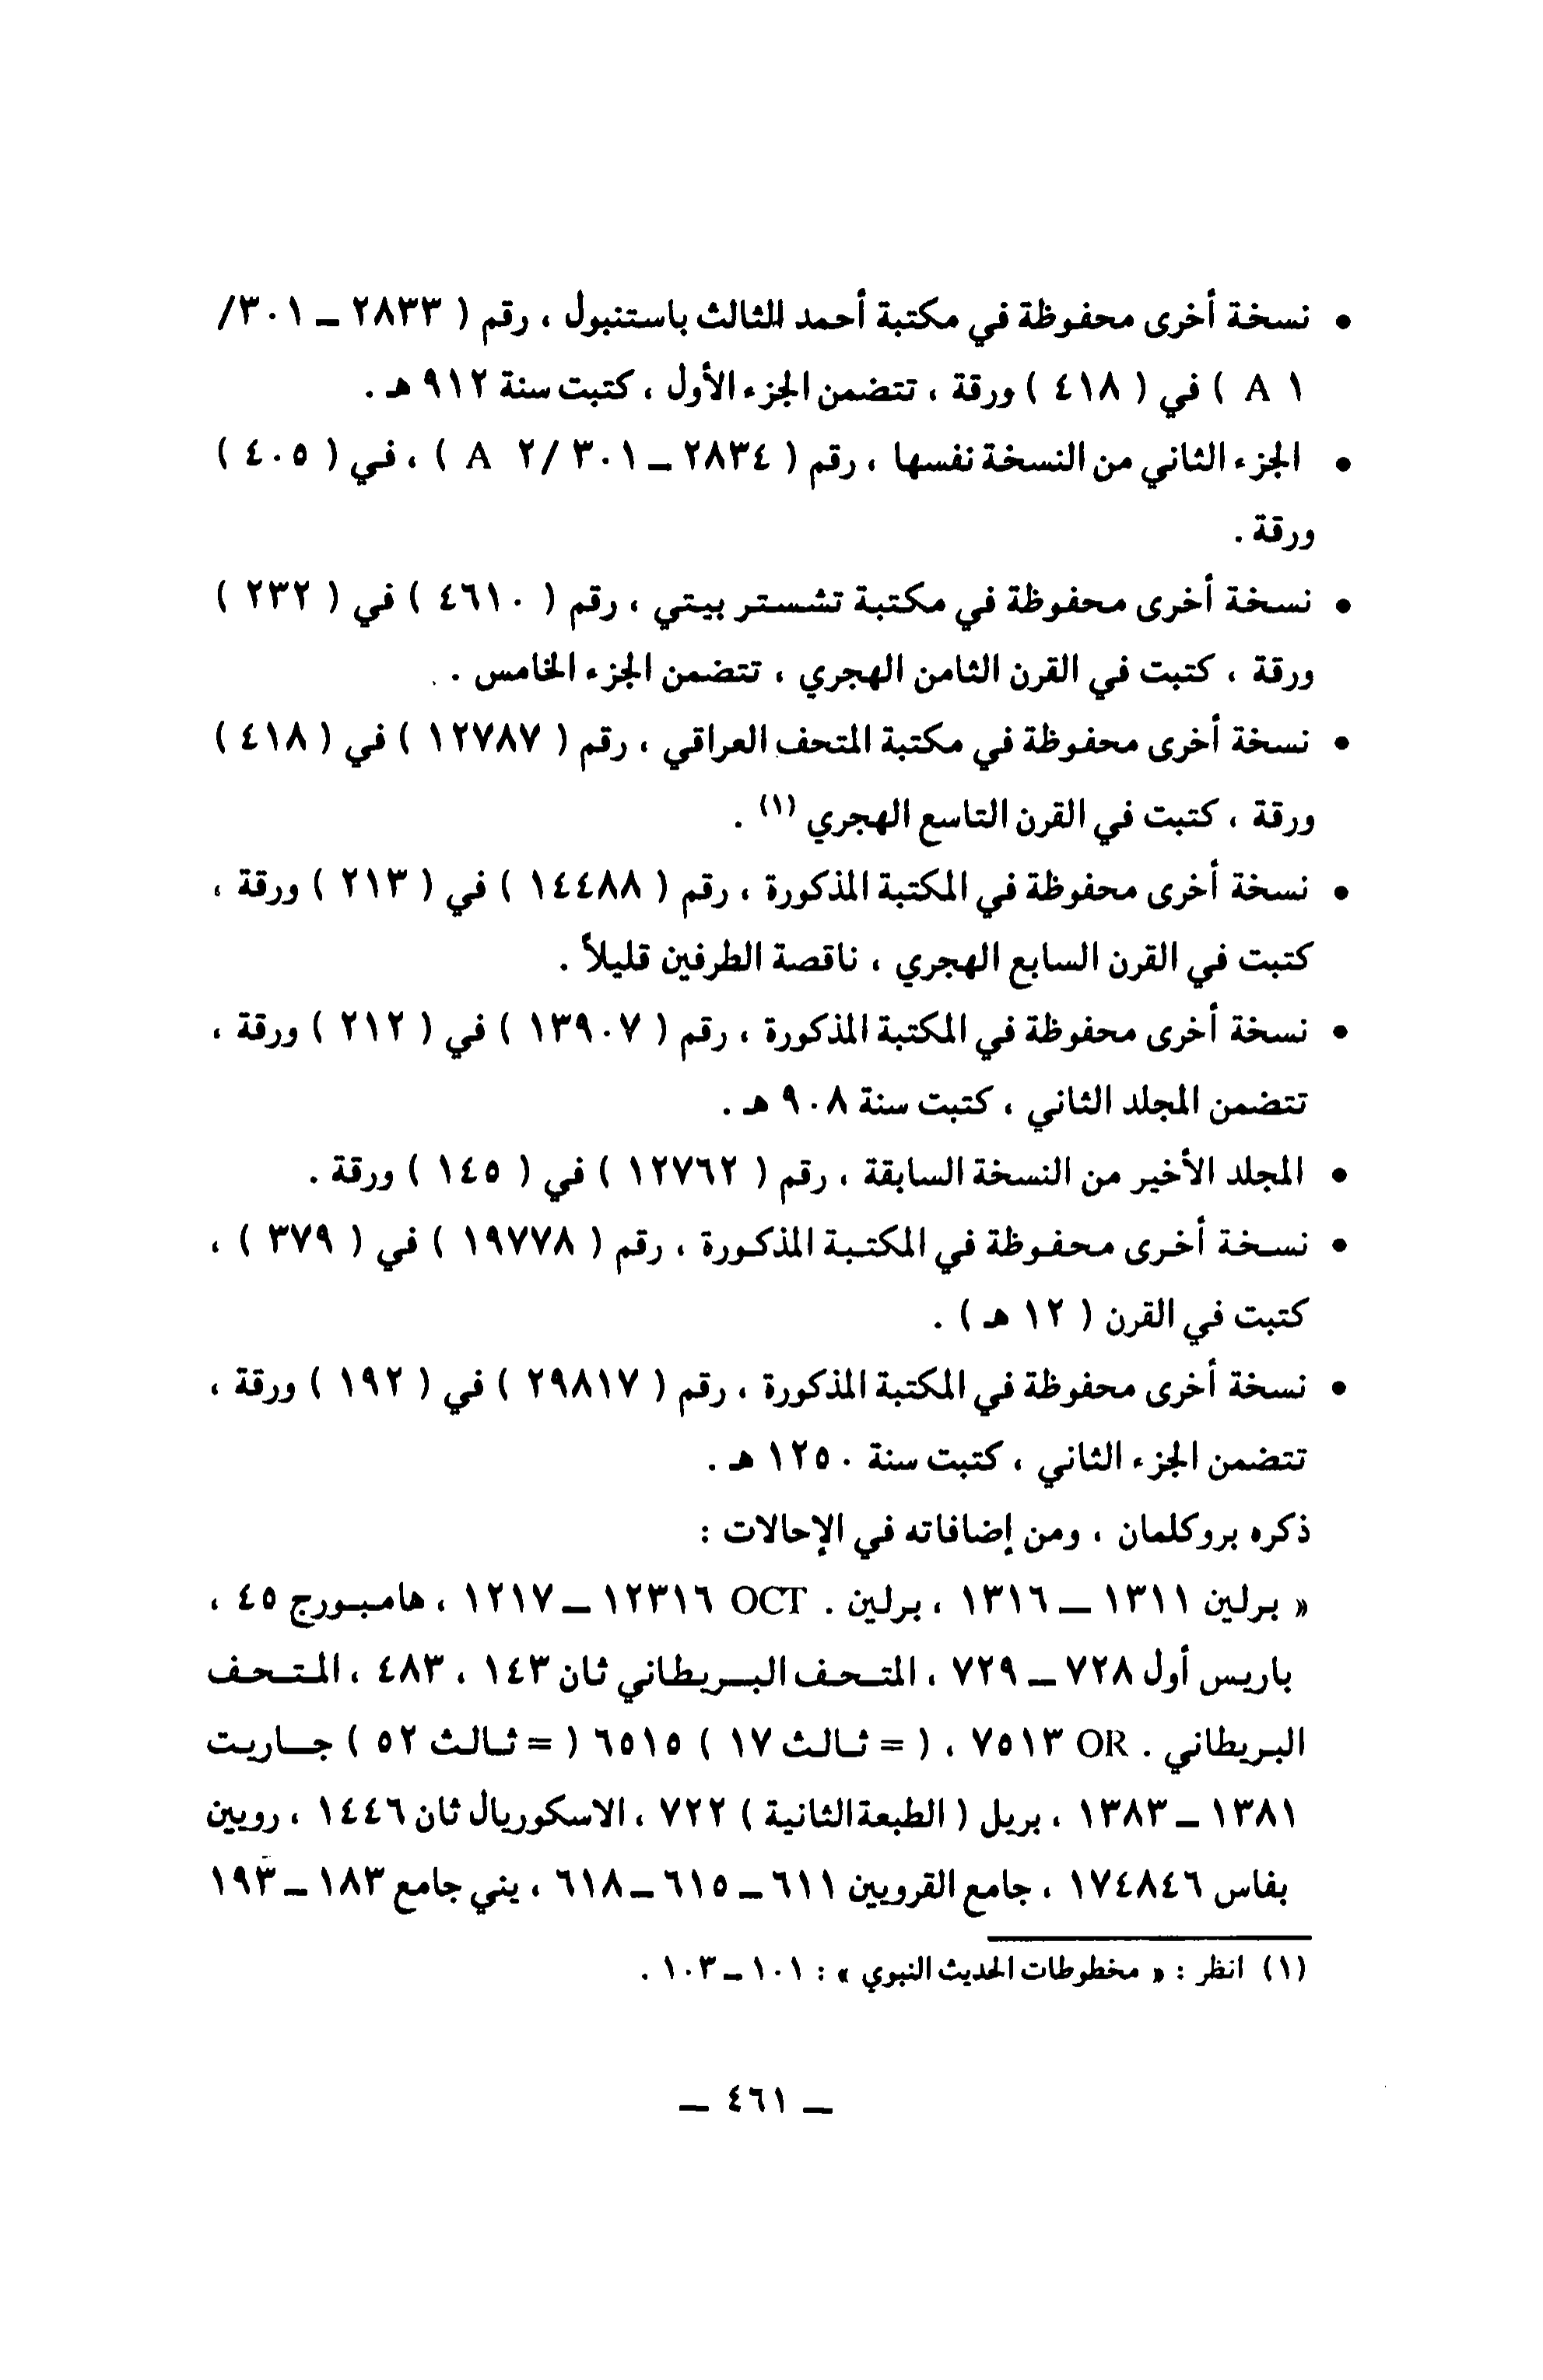 • نسخة أخرى محفوظة في مكتبة أحمد الثالث باستنبول ، رقم ( ٢٨٣٣ ــ ٣٠١/
A ١ ) في ( ٤١٨ ) ورقة ، تتضمن الجزء الأول ، كتبت سنة ٩١٢ هـ .
• الجزء الثاني من النسخة نفسها ، رقم ( ٢٨٣٤ ــ ٣٠١ /٢ A ) ، في ( ٤٠٥ )
ورقة .
• نسخة أخرى محفوظة في مكتبة تشستر بيتي ، رقم ( ٤٦١٠ ) في ( ٢٣٢ )
ورقة ، كتبت في القرن الثامن الهجري ، تتضمن الجزء الخامس .
• نسخة أخرى محفوظة في مكتبة المتحف العراقي ، رقم ( ١٢٧٨٧ ) في ( ٤١٨ )
ورقة ، كتبت في القرن التاسع الهجري (١) .
• نسخة أخرى محفوظة في المكتبة المذكورة ، رقم ( ١٤٤٨٨ ) في ( ٢١٣ ) ورقة ،
كتبت في القرن السابع الهجري ، ناقصة الطرفين قليلاً .
• نسخة أخرى محفوظة في المكتبة المذكورة ، رقم ( ١٣٩٠٧ ) في ( ٢١٢ ) ورقة ،
تتضمن المجلد الثاني ، كتبت سنة ٩٠٨ هـ .
• المجلد الأخير من النسخة السابقة ، رقم ( ١٢٧٦٢ ) في ( ١٤٥ ) ورقة .
• نسخة أخرى محفوظة في المكتبة المذكورة ، رقم ( ١٩٧٧٨ ) في ( ٣٧٩ ) ،
كتبت في القرن ( ١٢ هـ ) .
• نسخة أخرى محفوظة في المكتبة المذكورة ، رقم ( ٢٩٨١٧ ) في ( ١٩٢ ) ورقة ،
تتضمن الجزء الثاني ، كتبت سنة ١٢٥٠ هـ .
ذكره بروكلمان ، ومن إضافاته في الإحالات :
« برلين ١٣١١ ــ ١٣١٦ ، برلين . OCT ١٢٣١٦ ــ ١٢١٧ ، هامبورج ٤٥ ،
باريس أول ٧٢٨ ــ ٧٢٩ ، المتحف البريطاني ثان ١٤٣ ، ٤٨٣ ، المتحف
البريطاني . OR ٧٥١٣ ، ( = ثالث ١٧ ) ٦٥١٥ ( = ثالث ٥٢ ) جاريت
١٣٨١ ــ ١٣٨٣ ، بريل ( الطبعة الثانية ) ٧٢٢ ، الاسكوريال ثان ١٤٤٦ ، رويين
بفاس ١٧٤٨٤٦ ، جامع القرويين ٦١١ ــ ٦١٥ ــ ٦١٨ ، يني جامع ١٨٣ ــ ١٩٣
(١) انظر : « مخطوطات الحديث النبوي » : ١٠١ ــ ١٠٣ .
ــ ٤٦١ ــ